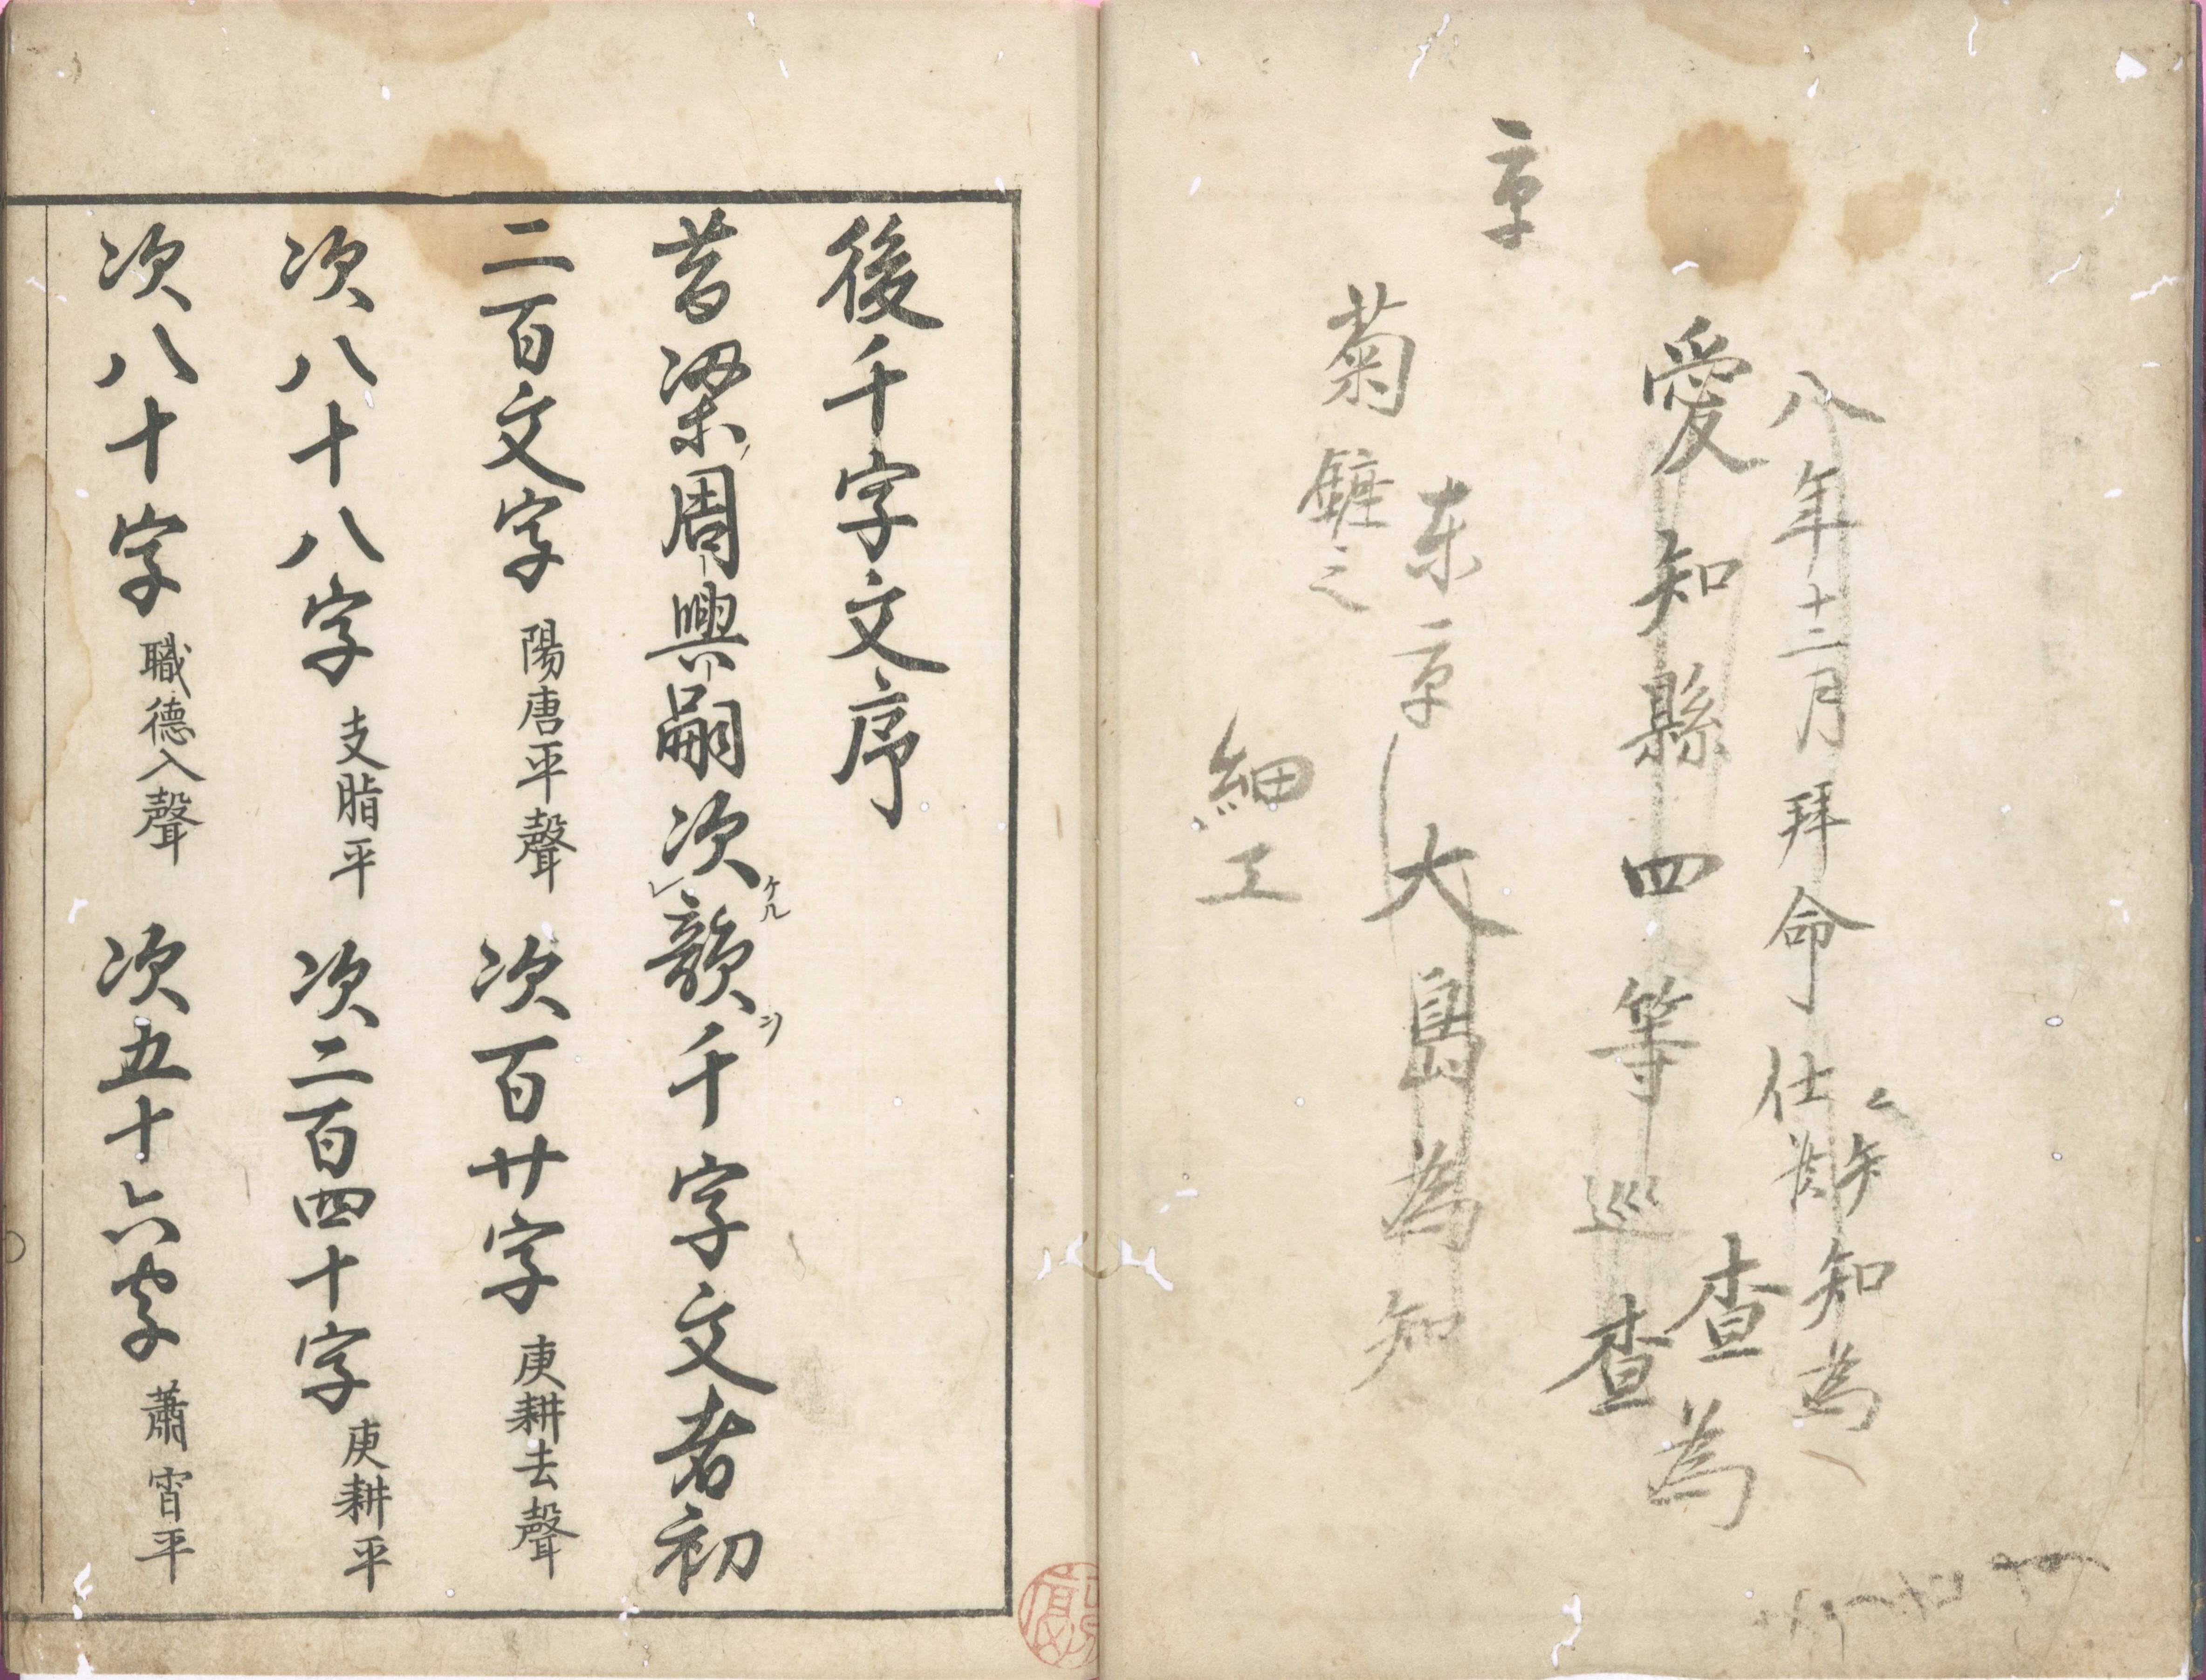 八年十二月拜命仕
知為
愛知縣四等巡査
査為
京
东京
大島為知
菊
之
細工
後千字文序
昔梁周興嗣次韻千字文者初
ノ
ケル
レ
二百文字 陽唐平聲 次百廿字 庚耕去聲
次八十八字 支脂平 次二百四十字 庚耕平
次八十字 職德入聲 次五十六字 蕭宵平